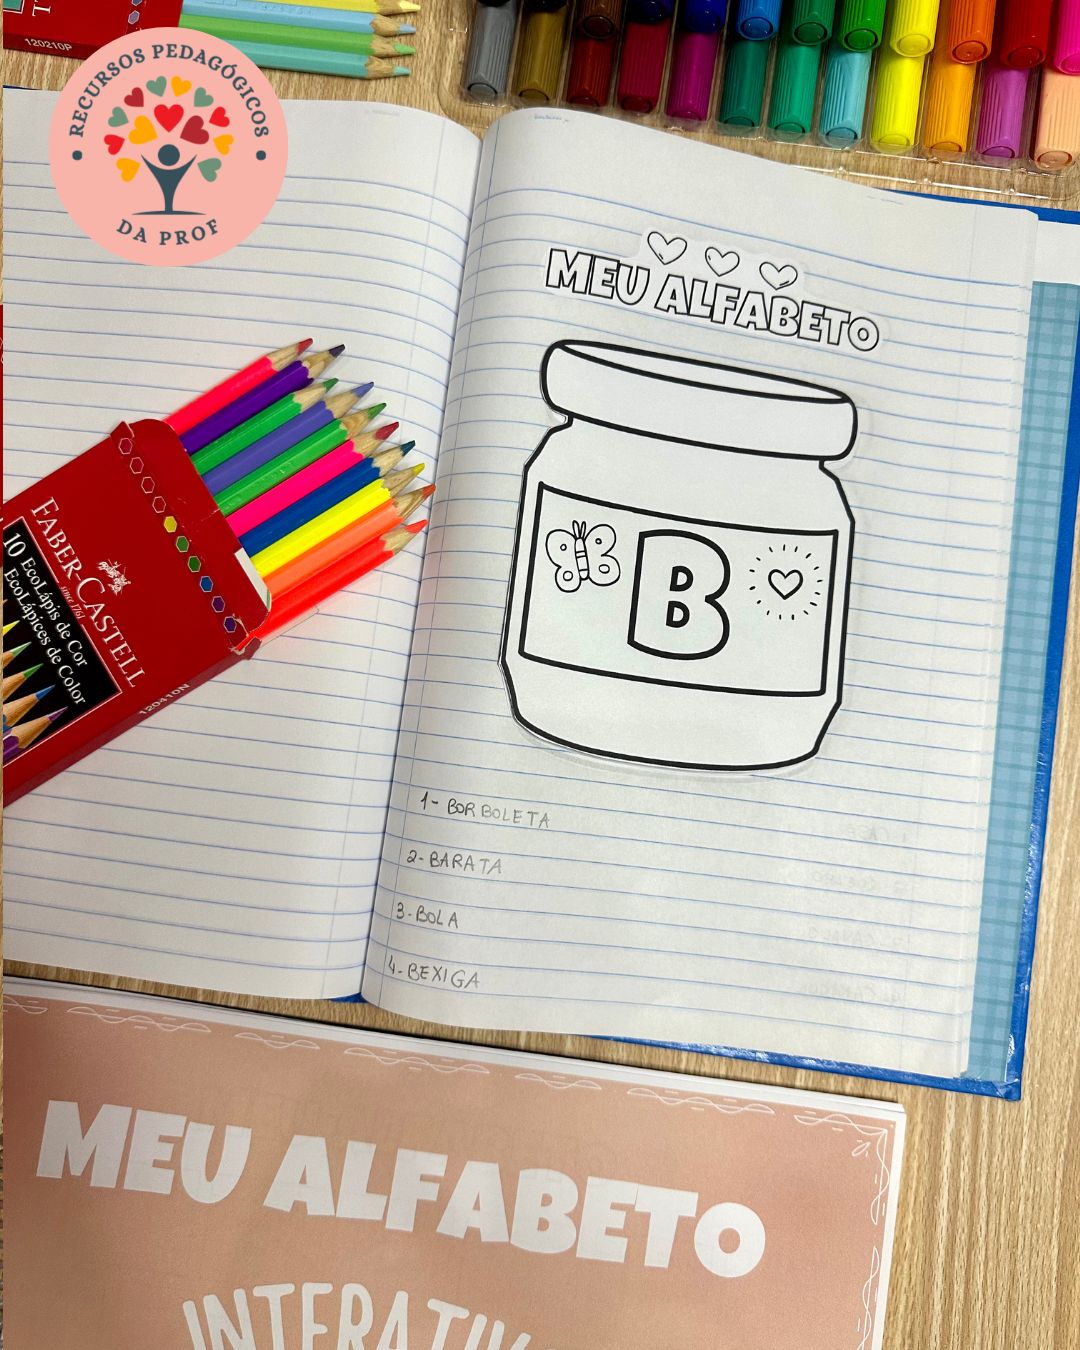 120210P
RECURSOS PEDAGÓGICOS
DA PROF
MEU ALFABETO
B
FABER-CASTELL
since 1761
10 EcoLápis de Cor
EcoLápices de Color
120410N
1- BORBOLETA
2- BARATA
3- BOLA
4- BEXIGA
MEU ALFABETO
INTERATIV